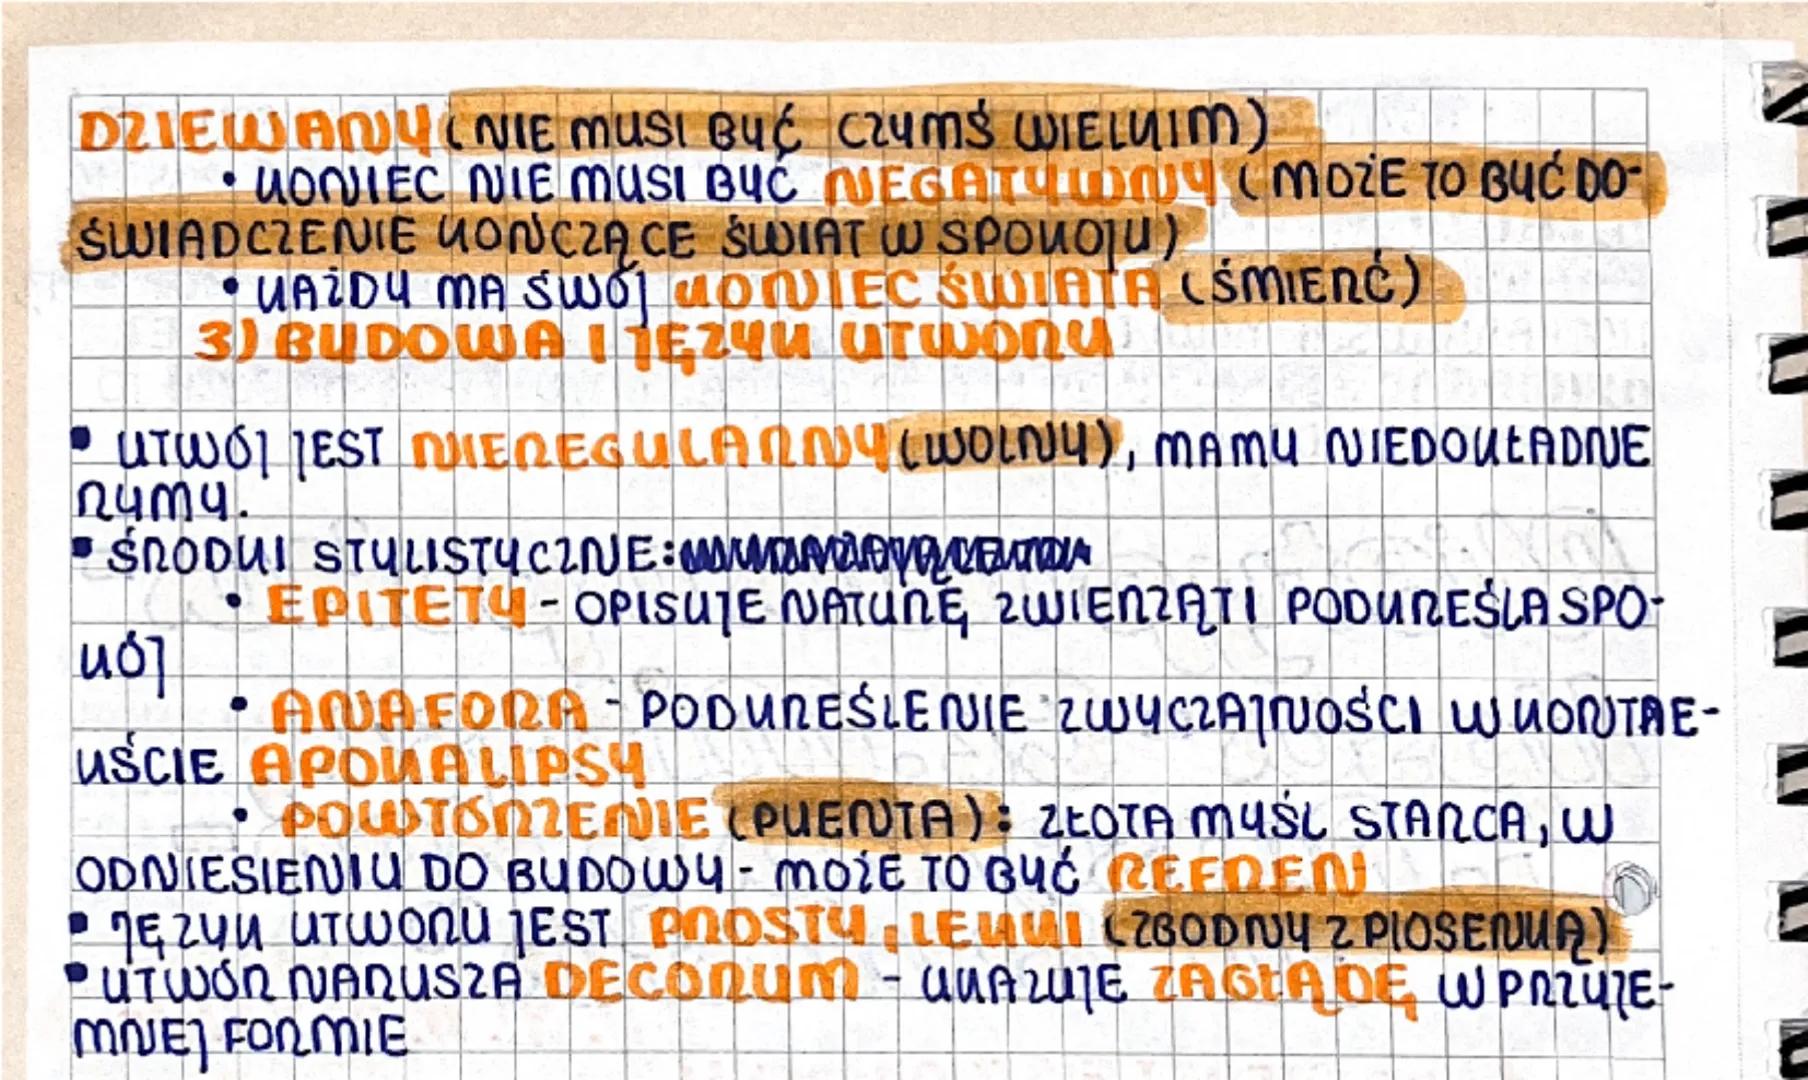 DZIEWANY (NIE MUSI BYĆ CZYMŚ WIELKIM)
• KONIEC NIE MUSI BYĆ NEGATYWNY (MOŻE TO BYĆ DO-
ŚWIADCZENIE KOŃCZĄCE ŚWIAT W SPOKOJU)
• KAŻDY MA SWÓJ KONIEC ŚWIATA (ŚMIERĆ)
3) BUDOWA I JĘZYK UTWORU
• UTWÓJ JEST NIEREGULARNY (WOLNY), MAMY NIEDOKŁADNE
RYMY.
• ŚRODKI STYLISTYCZNE:
• EPITETY - OPISUJE NATURĘ, ZWIERZĄT I PODKREŚLA SPO-
KÓJ
• ANAFORA - PODKREŚLENIE ZWYCZAJNOŚCI W KONTRE-
KŚCIE APOKALIPSY
• POWTÓRZENIE (PUENTA): ZŁOTA MYŚL STARCA, W
ODNIESIENIU DO BUDOWY - MOŻE TO BYĆ REFREN
• JĘZYK UTWORU JEST PROSTY, LEKKI (ZGODNY Z PIOSENKĄ)
• UTWÓR NARUSZA DECORUM - UKAZUJE ZAGŁADĘ W PRZYJE-
MNEJ FORMIE